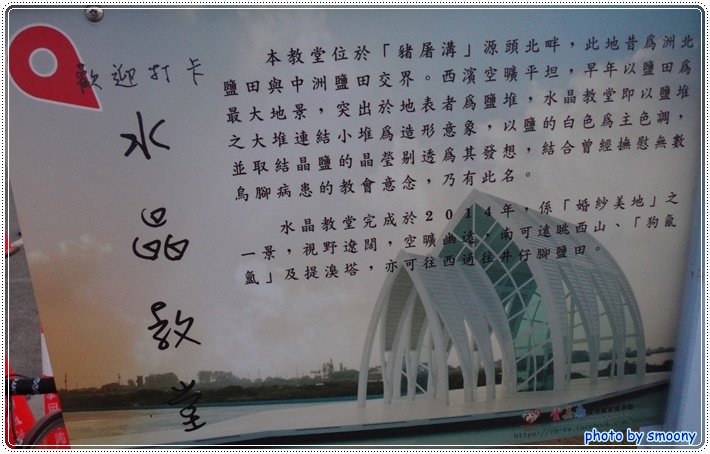 歡迎打卡
水晶教堂
本教堂位於「豬屠溝」源頭北畔，此地昔為洲北
鹽田與中洲鹽田交界。西濱空曠平坦，早年以鹽田為
最大地景，突出於地表者為鹽堆，水晶教堂即以鹽堆
之大堆連結小堆為造形意象，以鹽的白色為主色調，
並取結晶鹽的晶瑩剔透為其發想，結合曾經撫慰無數
烏腳病患的教會意念，乃有此名。
水晶教堂完成於2014年，係「婚紗美地」之
一景，視野遼闊，空曠幽遠，南可遠眺西山、「狗氤
氳」及提溴塔，亦可往西通往井仔腳鹽田。
photo by smoony